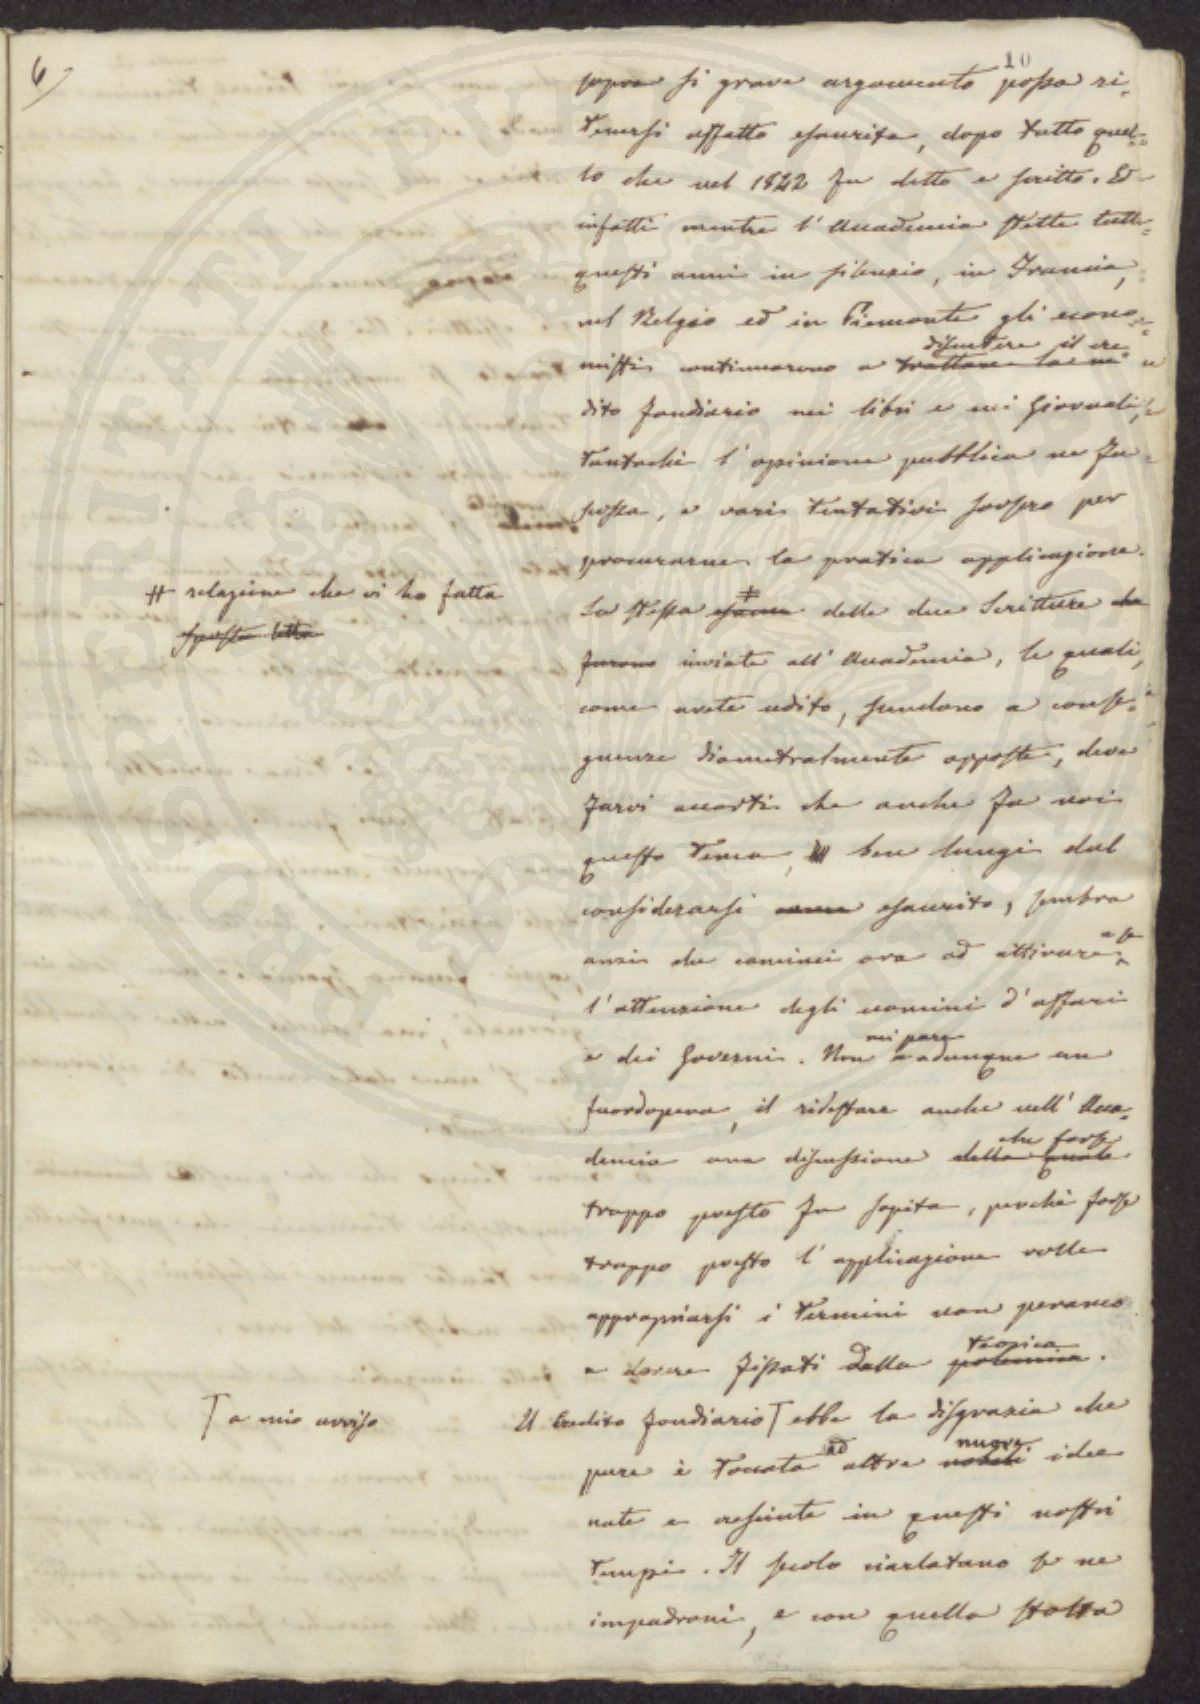 6/
10
sopra sì grave argomento possa ri-
tenersi affatto esaurita, dopo tutto quel-
lo che nel 1842 fu detto e scritto. Ed
infatti mentre l'Accademia stette tutti
questi anni in silenzio, in Francia,
nel Belgio ed in Piemonte gli econo-
discutere il cre
misti continuarono a trattare la
dito fondiario nei libri e nei Giornali,
tantochè l'opinione pubblica ne fu
scossa, e vari tentativi sorsero per
procurarne la pratica applicazione.
# relazione che vi ho fatta
sposta letta
La stessa esame # delle due Scritture che
furono inviate all'Accademia, le quali,
come avete udito, scendono a conse-
guenze diametralmente opposte, deve
farvi accorti che anche fra noi
questo tema, ben lungi dal
considerarsi come esaurito, sembra
anzi che cominci ora ad attirare a se
l'attenzione degli uomini d'affari
mi pare
e dei Governi. Non è adunque un
fuordopera, il ridestare anche nell'Acca-
che forse
demia una discussione della quale
troppo presto fu sopita, perchè forse
troppo presto l'applicazione volle
appropriarsi i termini non peranco
teorica
a dovere fissati dalla polemica.
T a mio avviso
Il Credito fondiario T ebbe la disgrazia che
ad nuove
pure è toccata altre nobili idee
nate e cresciute in questi nostri
tempi. Il secolo ciarlatano se ne
impadronì, e con quella stolta